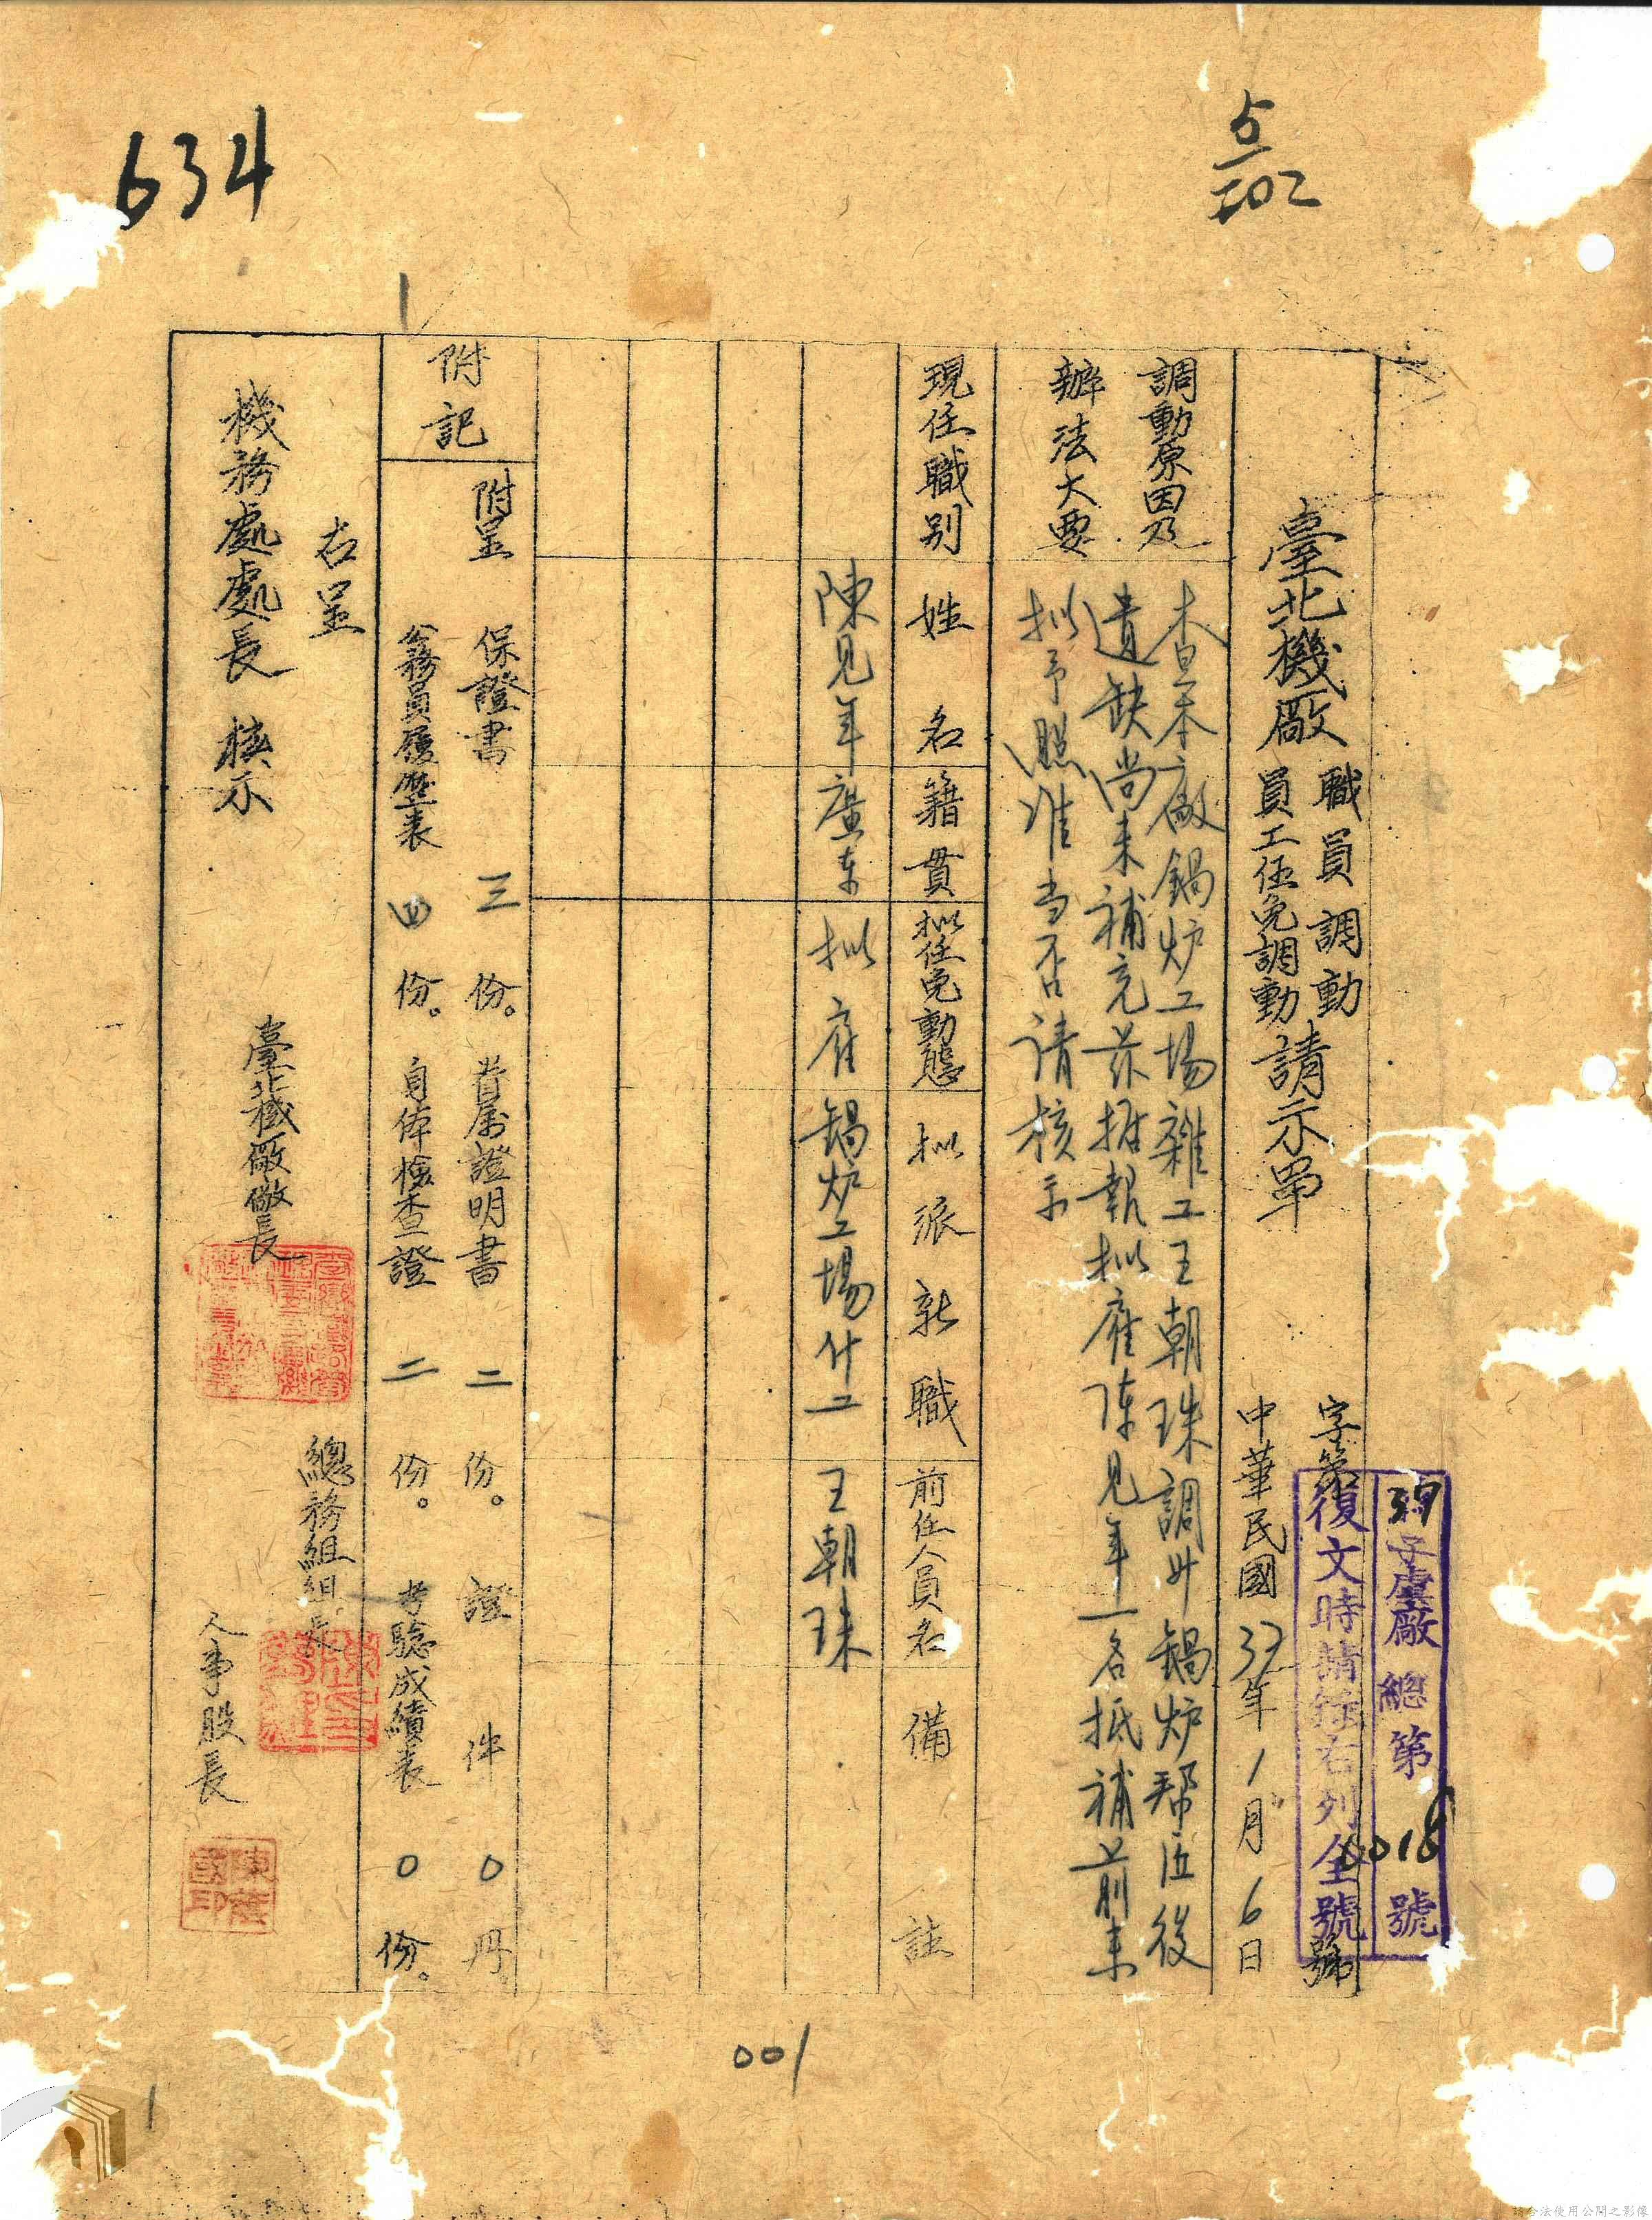 634
5/202
37子虞廠總第0018號
復文時請註右列全號
字第 號
臺北機廠 職員調動 員工任免調動 請示單
中華民國37年1月6日
調動原因及
辦法大要
查本廠鍋炉工場雜工王朝珠調升鍋炉幇匠後
遺缺尚未補充茲据報拟雇陳見年一名抵補前来
拟予照准当否请核示
現任職別 姓名 籍貫 拟任免動態 拟派新職 前任人員名 備註
陳見年 廣东 拟雇 鍋炉工場什工 王朝珠
附記
附呈 保證書 三份。眷属證明書 二份。證件 0 丹。
公務員履歷表 四份。自体檢查證 二份。考驗成績表 0份。
右呈
機務處處長 核示
臺北機廠廠長
總務組組長
人事股長
001
請合法使用公開之影像